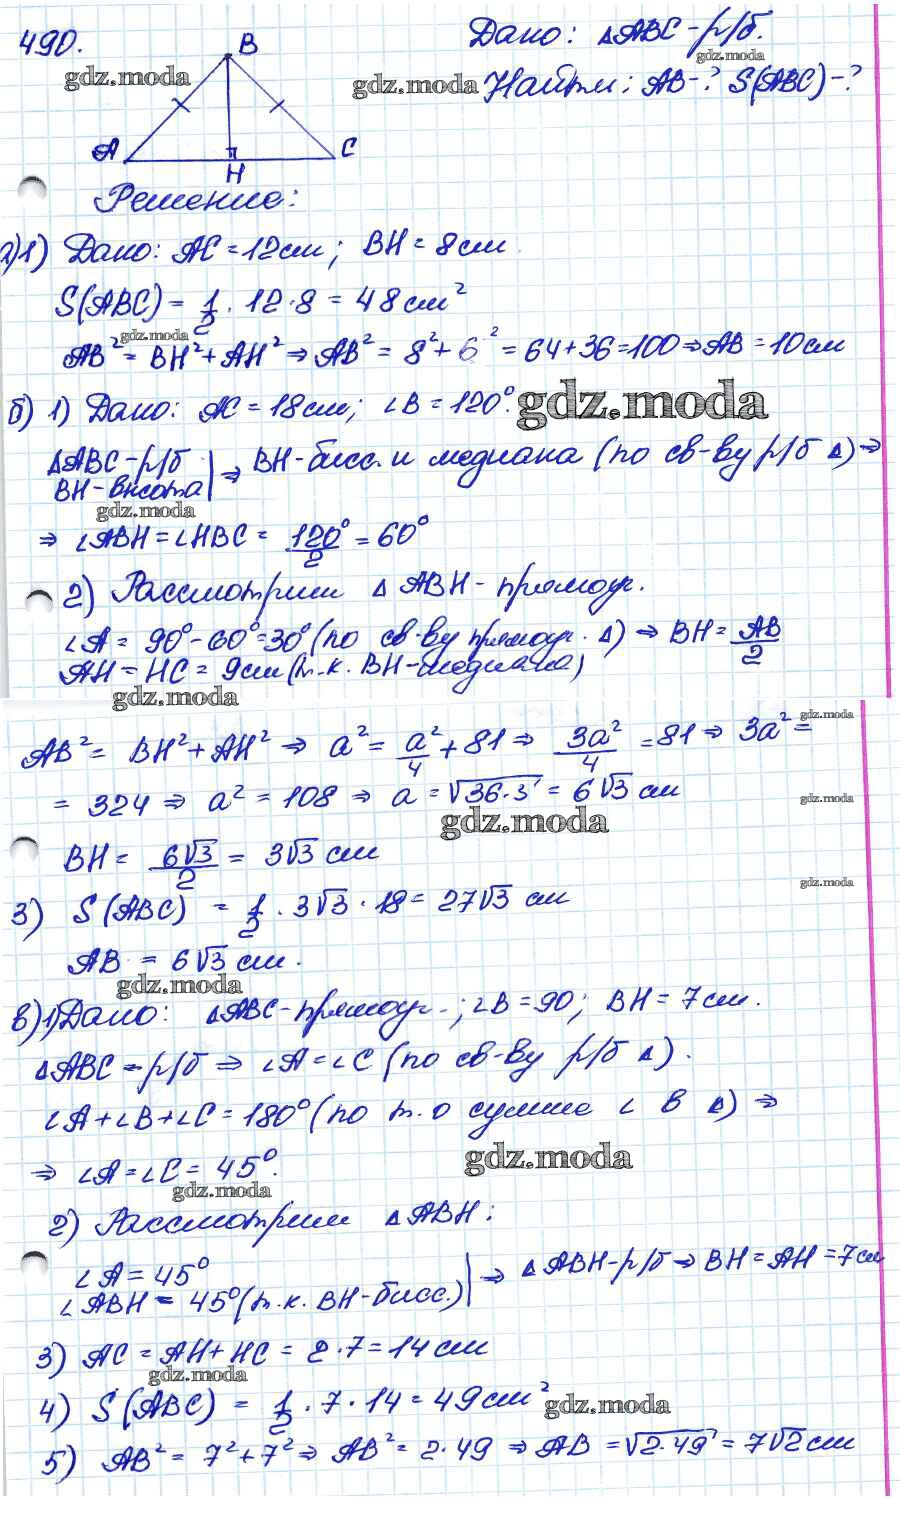 490.
B
Дано: △ABC-р/б.
gdz.moda
gdz.moda
gdz.moda
Найти: AB-? S(ABC)-?
A
C
H
Решение:
а) 1) Дано: AC = 12см; BH = 8см.
S(ABC) = 1/2 · 12·8 = 48 см²
gdz.moda
AB² = BH² + AH² ⇒ AB² = 8² + 6² = 64+36=100 ⇒ AB = 10см
б) 1) Дано: AC = 18см; ∠B = 120°.
gdz.moda
△ABC-р/б
BH-высота | ⇒ BH-бисс. и медиана (по св-ву р/б △) ⇒
gdz.moda
⇒ ∠ABH = ∠HBC = 120°/2 = 60°
2) Рассмотрим △ABH- прямоуг.
∠A = 90°-60°=30° (по св-ву прямоуг. △) ⇒ BH = AB/2
AH = HC = 9см (т.к. BH-медиана)
gdz.moda
AB² = BH² + AH² ⇒ a² = a²/4 + 81 ⇒ 3a²/4 = 81 ⇒ 3a² =
gdz.moda
= 324 ⇒ a² = 108 ⇒ a = √36·3 = 6√3 см
gdz.moda
gdz.moda
BH = 6√3/2 = 3√3 см
gdz.moda
3) S(ABC) = 1/2 · 3√3 · 18 = 27√3 см
AB = 6√3 см.
gdz.moda
в) 1) Дано: △ABC-прямоуг.; ∠B = 90; BH = 7см.
△ABC-р/б ⇒ ∠A = ∠C (по св-ву р/б △).
∠A+∠B+∠C = 180° (по т. о сумме ∠ в △) ⇒
⇒ ∠A = ∠C = 45°.
gdz.moda
gdz.moda
2) Рассмотрим △ABH:
∠A = 45°
∠ABH = 45° (т.к. BH-бисс.) | ⇒ △ABH-р/б ⇒ BH = AH = 7см
3) AC = AH + HC = 2·7 = 14 см
gdz.moda
4) S(ABC) = 1/2 · 7 · 14 = 49 см²
gdz.moda
5) AB² = 7² + 7² ⇒ AB² = 2·49 ⇒ AB = √2·49 = 7√2 см